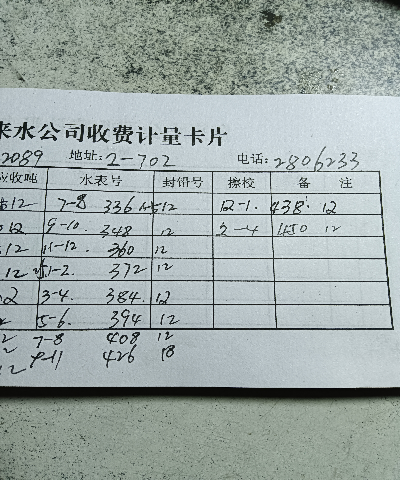 来水公司收费计量卡片
2089 地址:2-702 电话:2806233
应收吨 水表号 封铅号 擦校 备 注
12 7-8 336 12 12-1. 438 12
12 9-10. 348 12 3-4 450 12
12 11-12. 360 12
12 1-2. 372 12
2 3-4. 384. 12
2 5-6. 394 12
2 7-8 408 12
12 9-11 426 18